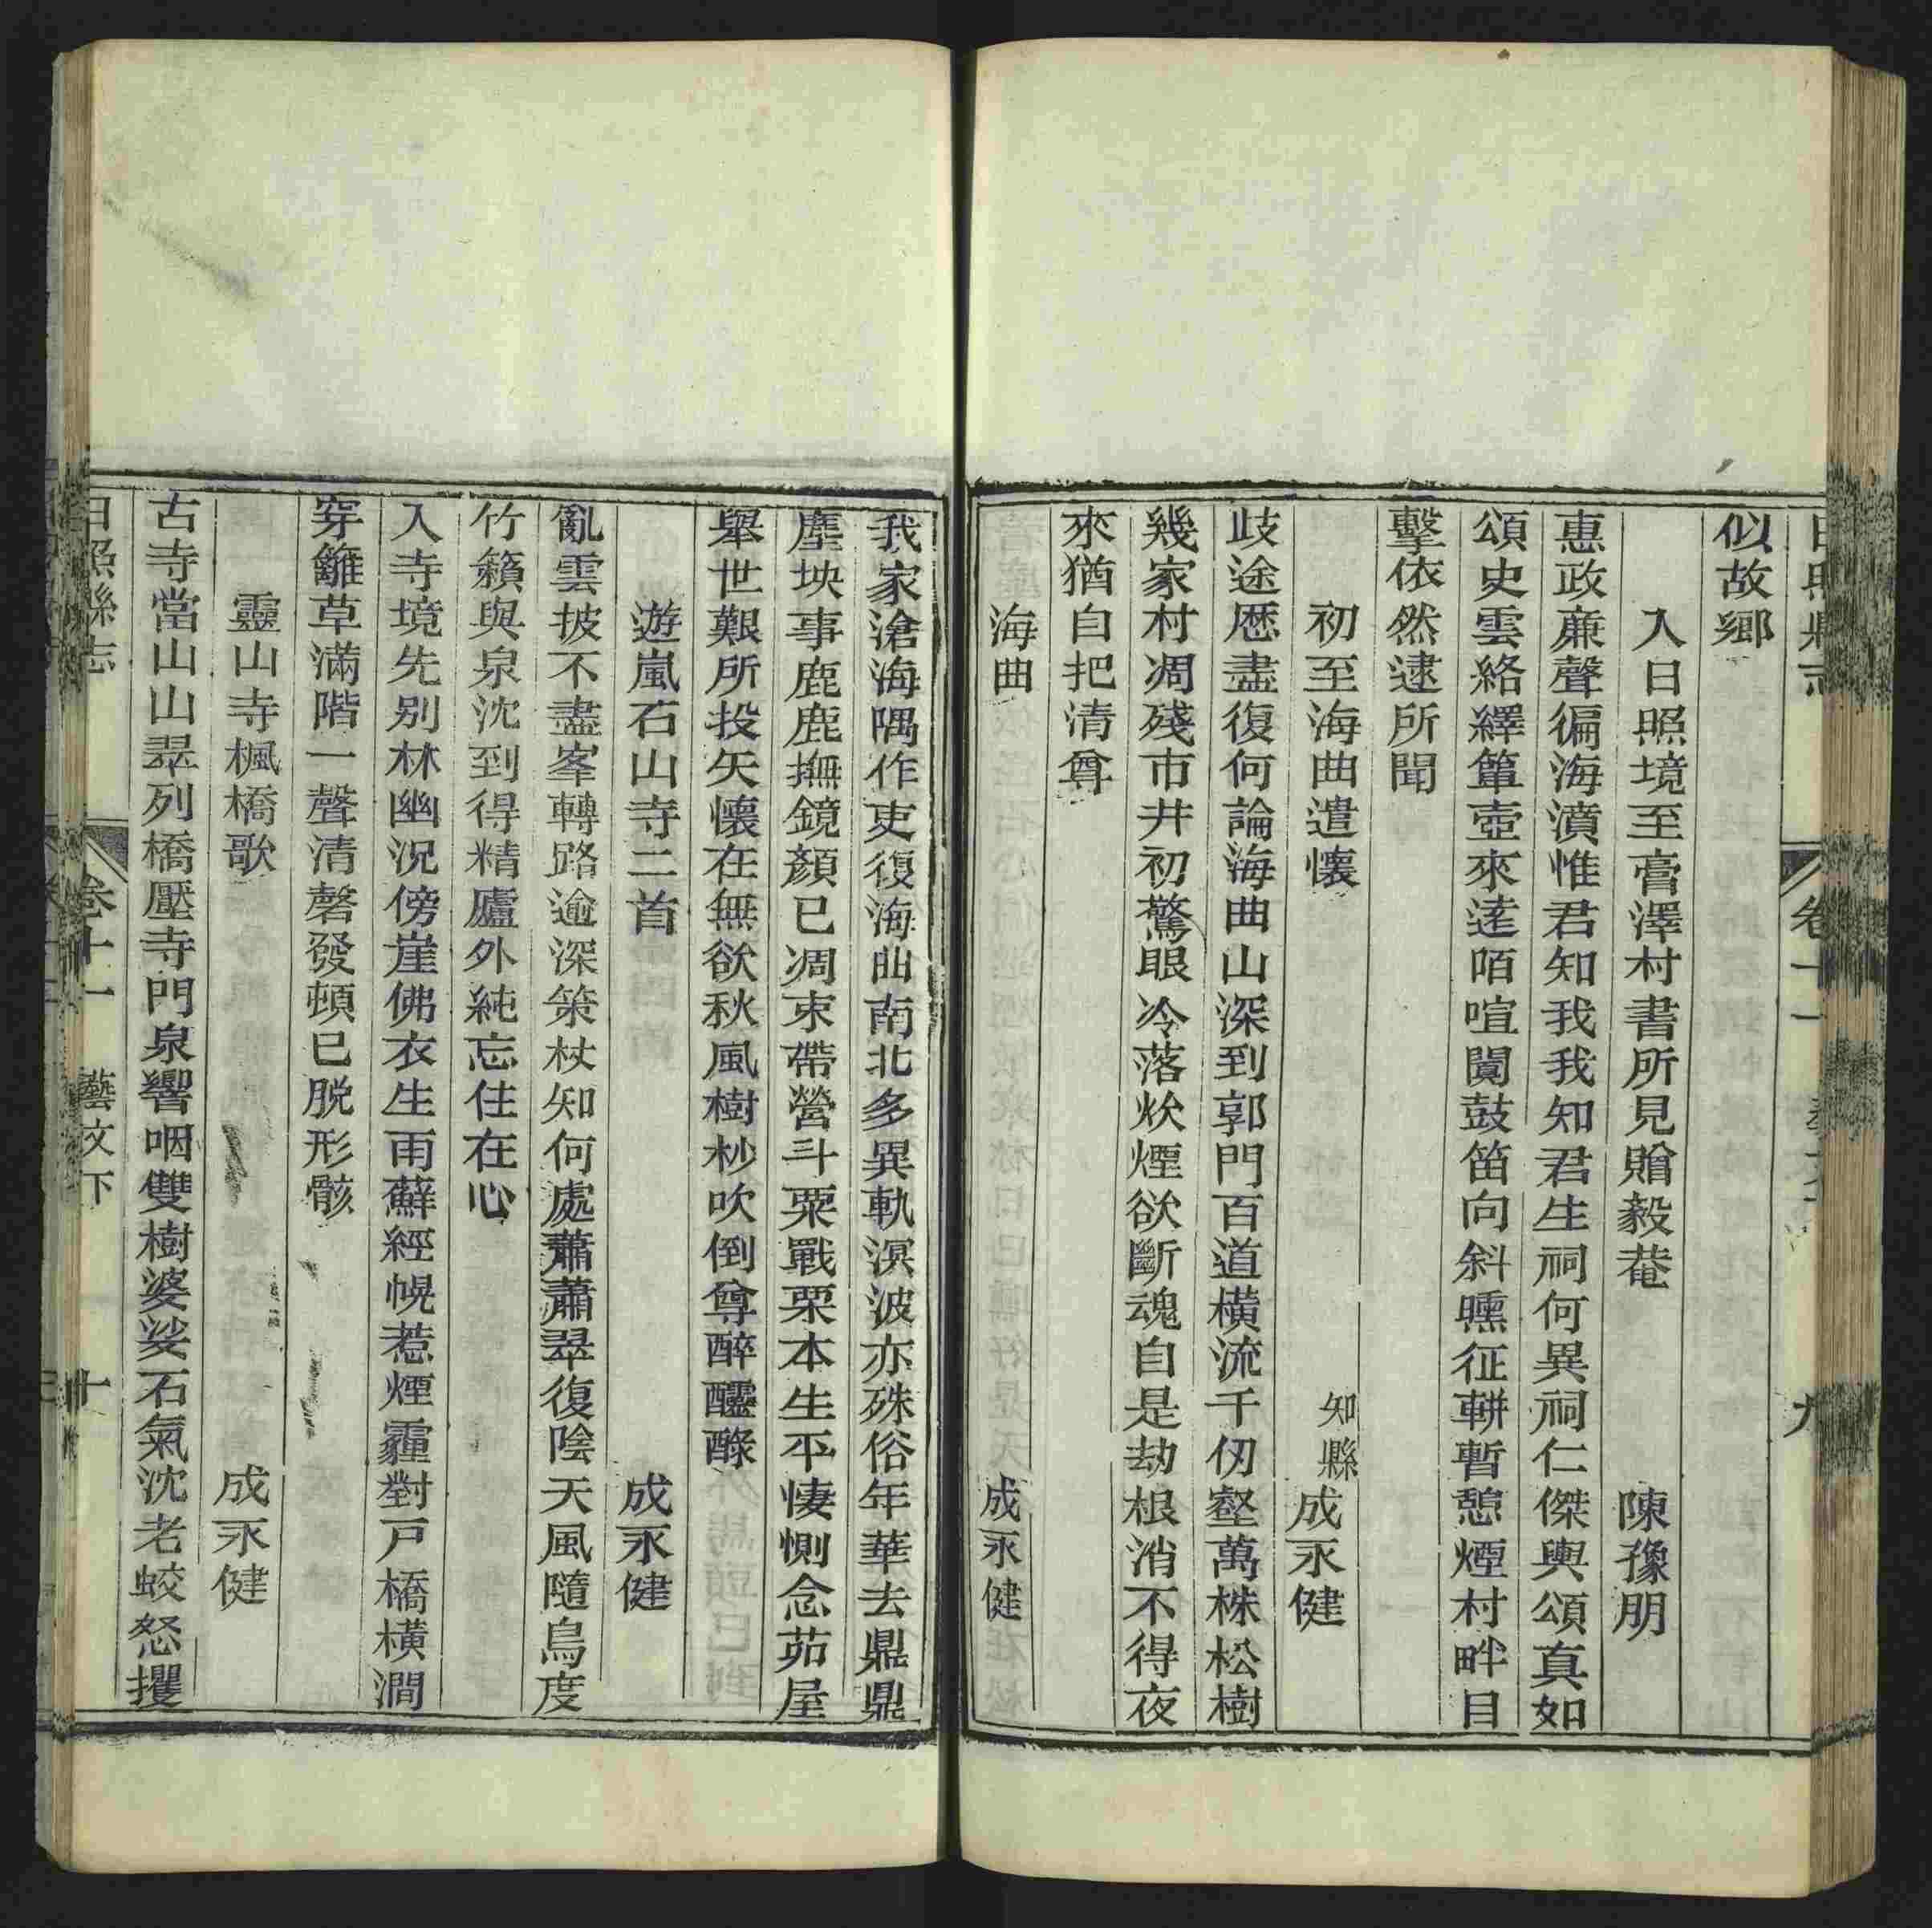 日照縣志 卷十一 九
似故鄉
入日照境至膏澤村書所見贈毅菴 陳豫朋
惠政亷聲徧海濆惟君知我我知君生祠何異祠仁傑輿頌真如
頌史雲絡繹簞壺來逵陌喧闐鼓笛向斜曛征軿暫憩煙村畔目
擊依然逮所聞
初至海曲遣懷 知縣成永健
歧途歴盡復何論海曲山深到郭門百道橫流千仞壑萬株松樹
幾家村凋殘市井初驚眼冷落炊煙欲斷魂自是劫根消不得夜
來猶自把清尊
海曲 成永健
我家滄海隅作吏復海曲南北多異軌溟波亦殊俗年華去鼎鼎
塵坱事鹿鹿撫鏡顏已凋束帶營斗粟戰栗本生平悽惻念茆屋
舉世艱所投矢懷在無欲秋風樹杪吹倒尊醉醽醁
遊嵐石山寺二首 成永健
亂雲披不盡峯轉路逾深策杖知何處蕭蕭翠復陰天風隨鳥度
竹籟與泉沈到得精廬外純忘住在心
入寺境先別林幽況傍崖佛衣生雨蘚經幌惹煙霾對戸橋橫澗
穿籬草滿階一聲清磬發頓已脱形骸
靈山寺楓橋歌 成永健
古寺當山山翠列橋壓寺門泉響咽雙樹婆娑石氣沈老蛟怒攫
日照縣志 卷十一 藝文下 十